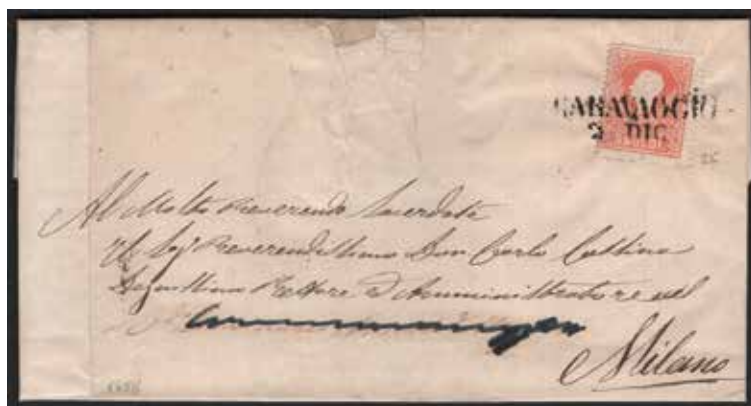 CARAVAGGIO
2 DIC
Al Molto Reverendo Sacerdote
Il Sig Reverendissimo Don Carlo
Degnissimo Rettore Amministratore nel
Milano